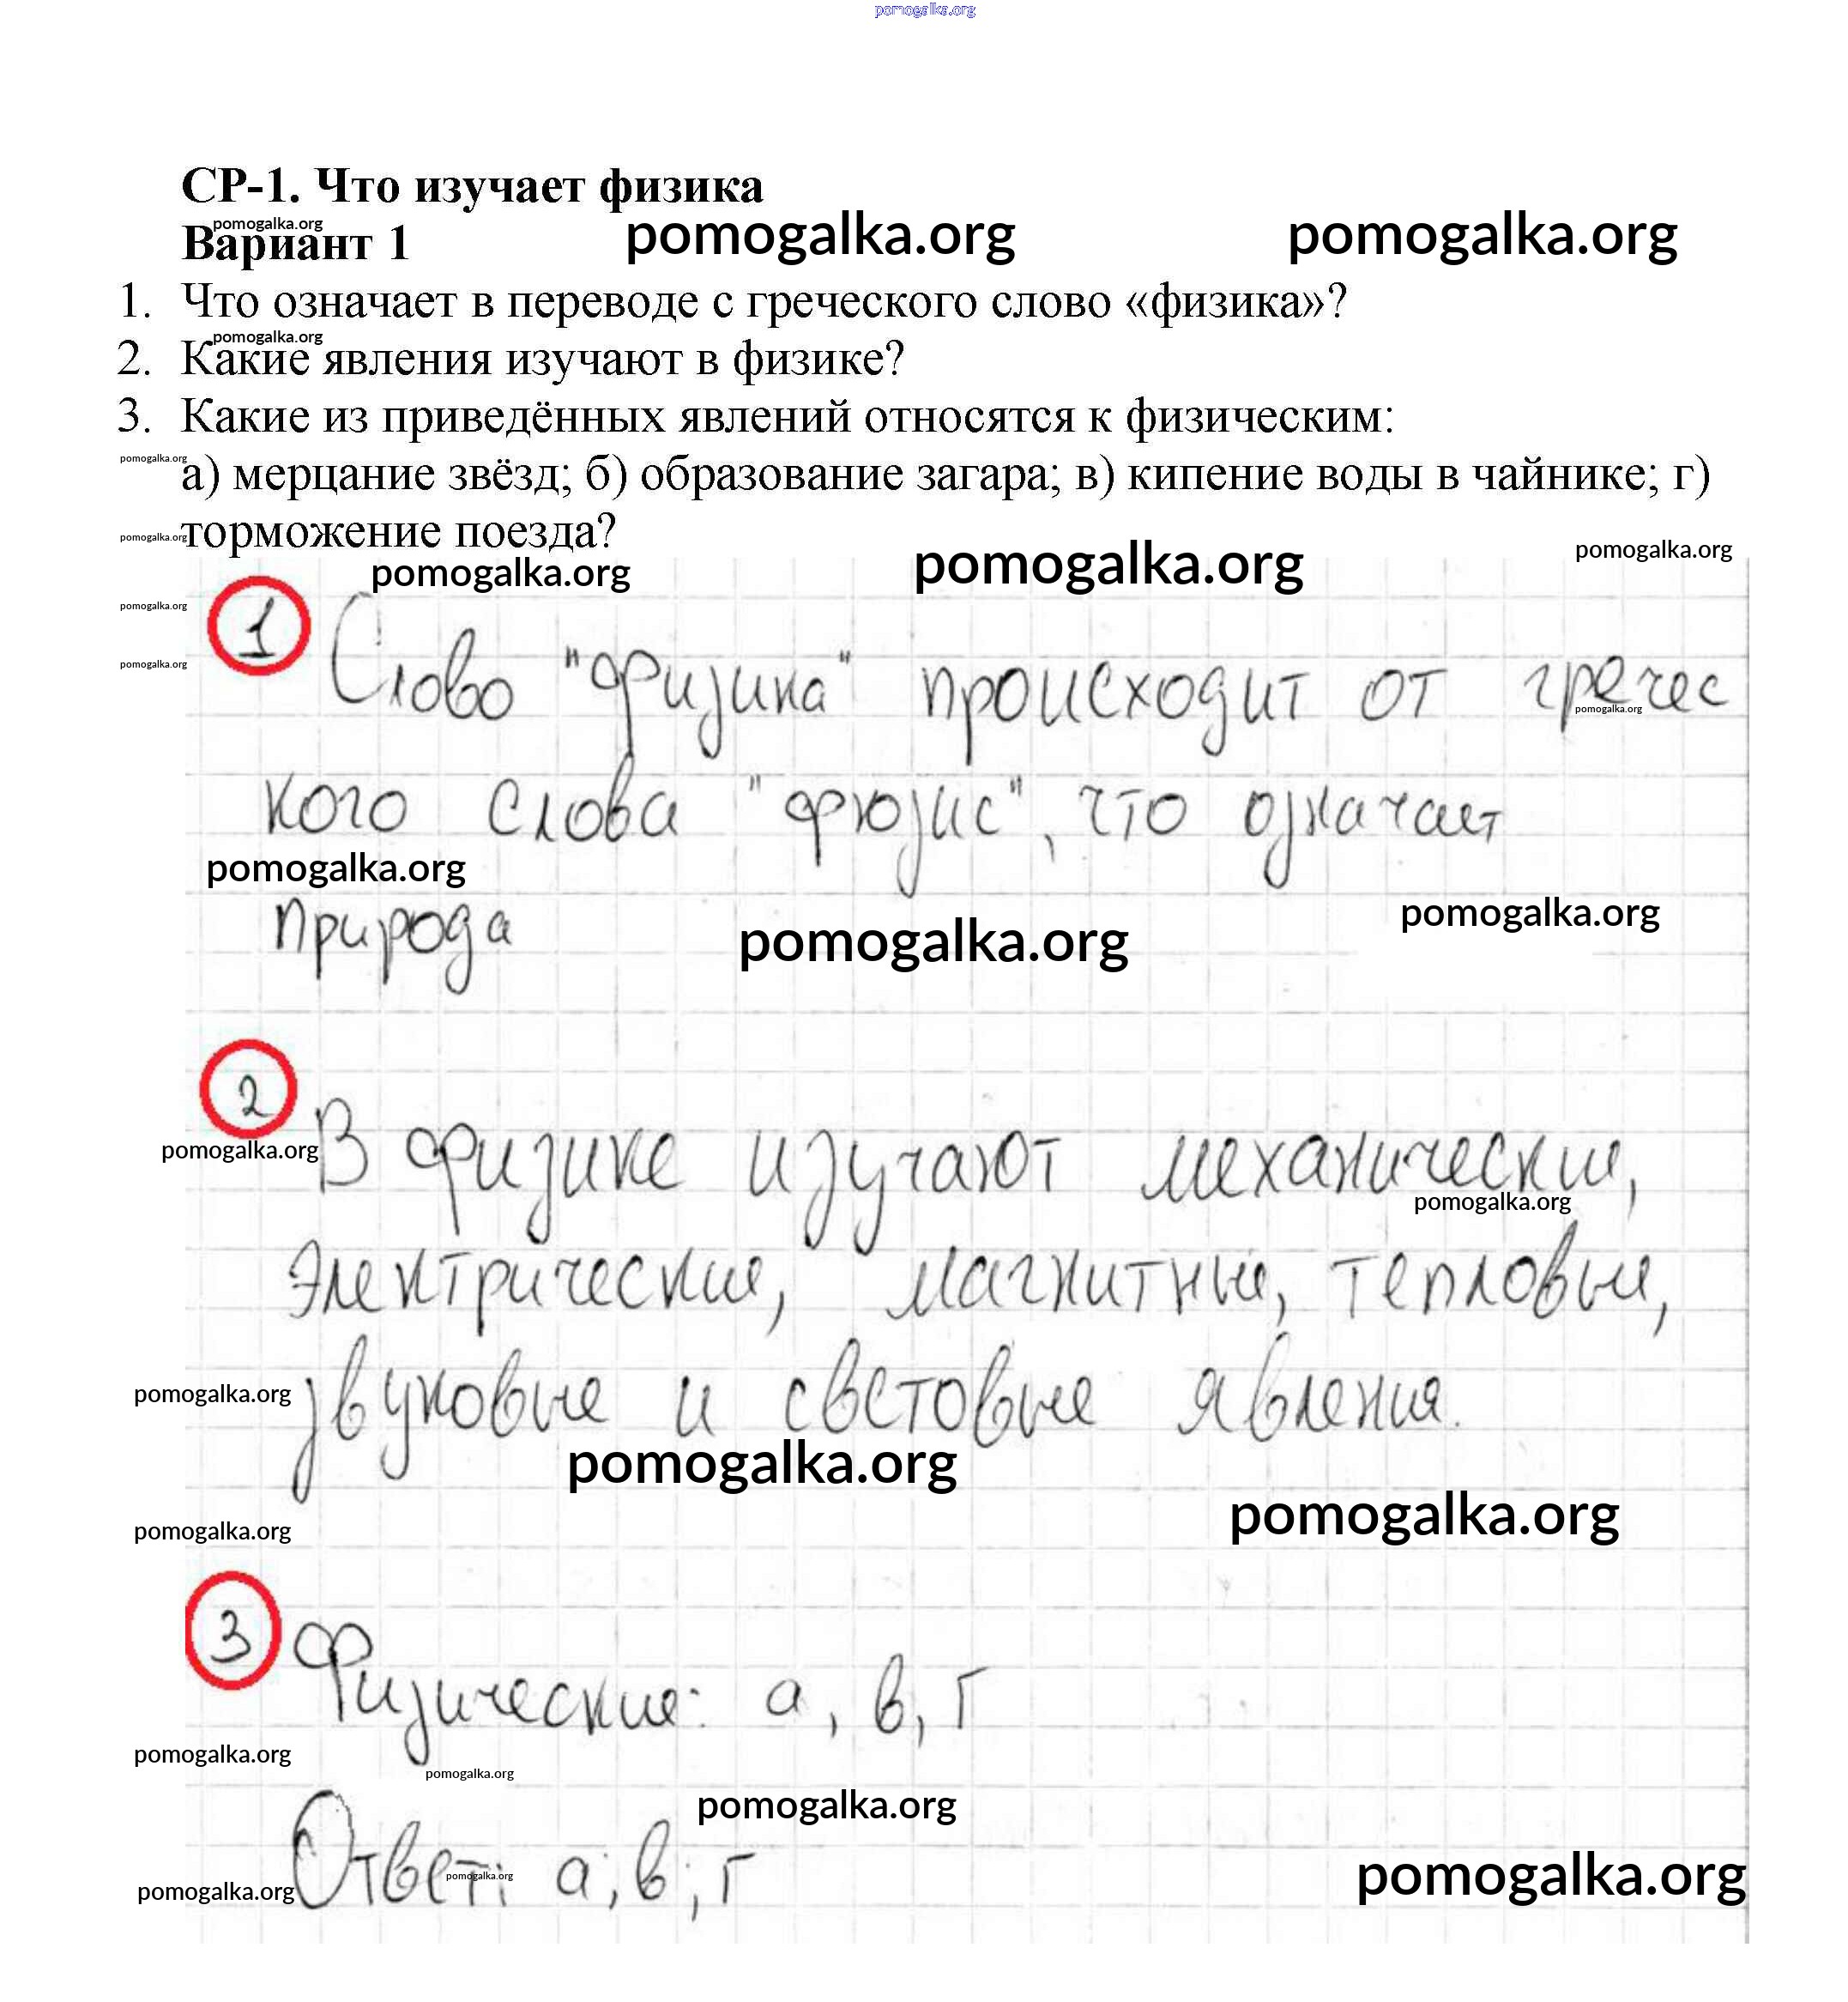 pomogalka.org
СР-1. Что изучает физика
pomogalka.org
Вариант 1 pomogalka.org pomogalka.org
1. Что означает в переводе с греческого слово «физика»?
pomogalka.org
2. Какие явления изучают в физике?
3. Какие из приведённых явлений относятся к физическим:
pomogalka.org а) мерцание звёзд; б) образование загара; в) кипение воды в чайнике; г)
pomogalka.org торможение поезда?
pomogalka.org pomogalka.org pomogalka.org
pomogalka.org
1 Слово "физика" происходит от гречес
pomogalka.org pomogalka.org
кого слова "фюзис", что означает
pomogalka.org pomogalka.org
природа pomogalka.org
2
pomogalka.org В физике изучают механические,
pomogalka.org
электрические, магнитные, тепловые,
pomogalka.org звуковые и световые явления.
pomogalka.org
pomogalka.org pomogalka.org
3 Физические: а, в, г
pomogalka.org
pomogalka.org
pomogalka.org
pomogalka.org Ответ: а; в; г pomogalka.org pomogalka.org